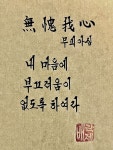 無愧我心
무괴아심
내 마음에
부끄러움이
없도록 하여라